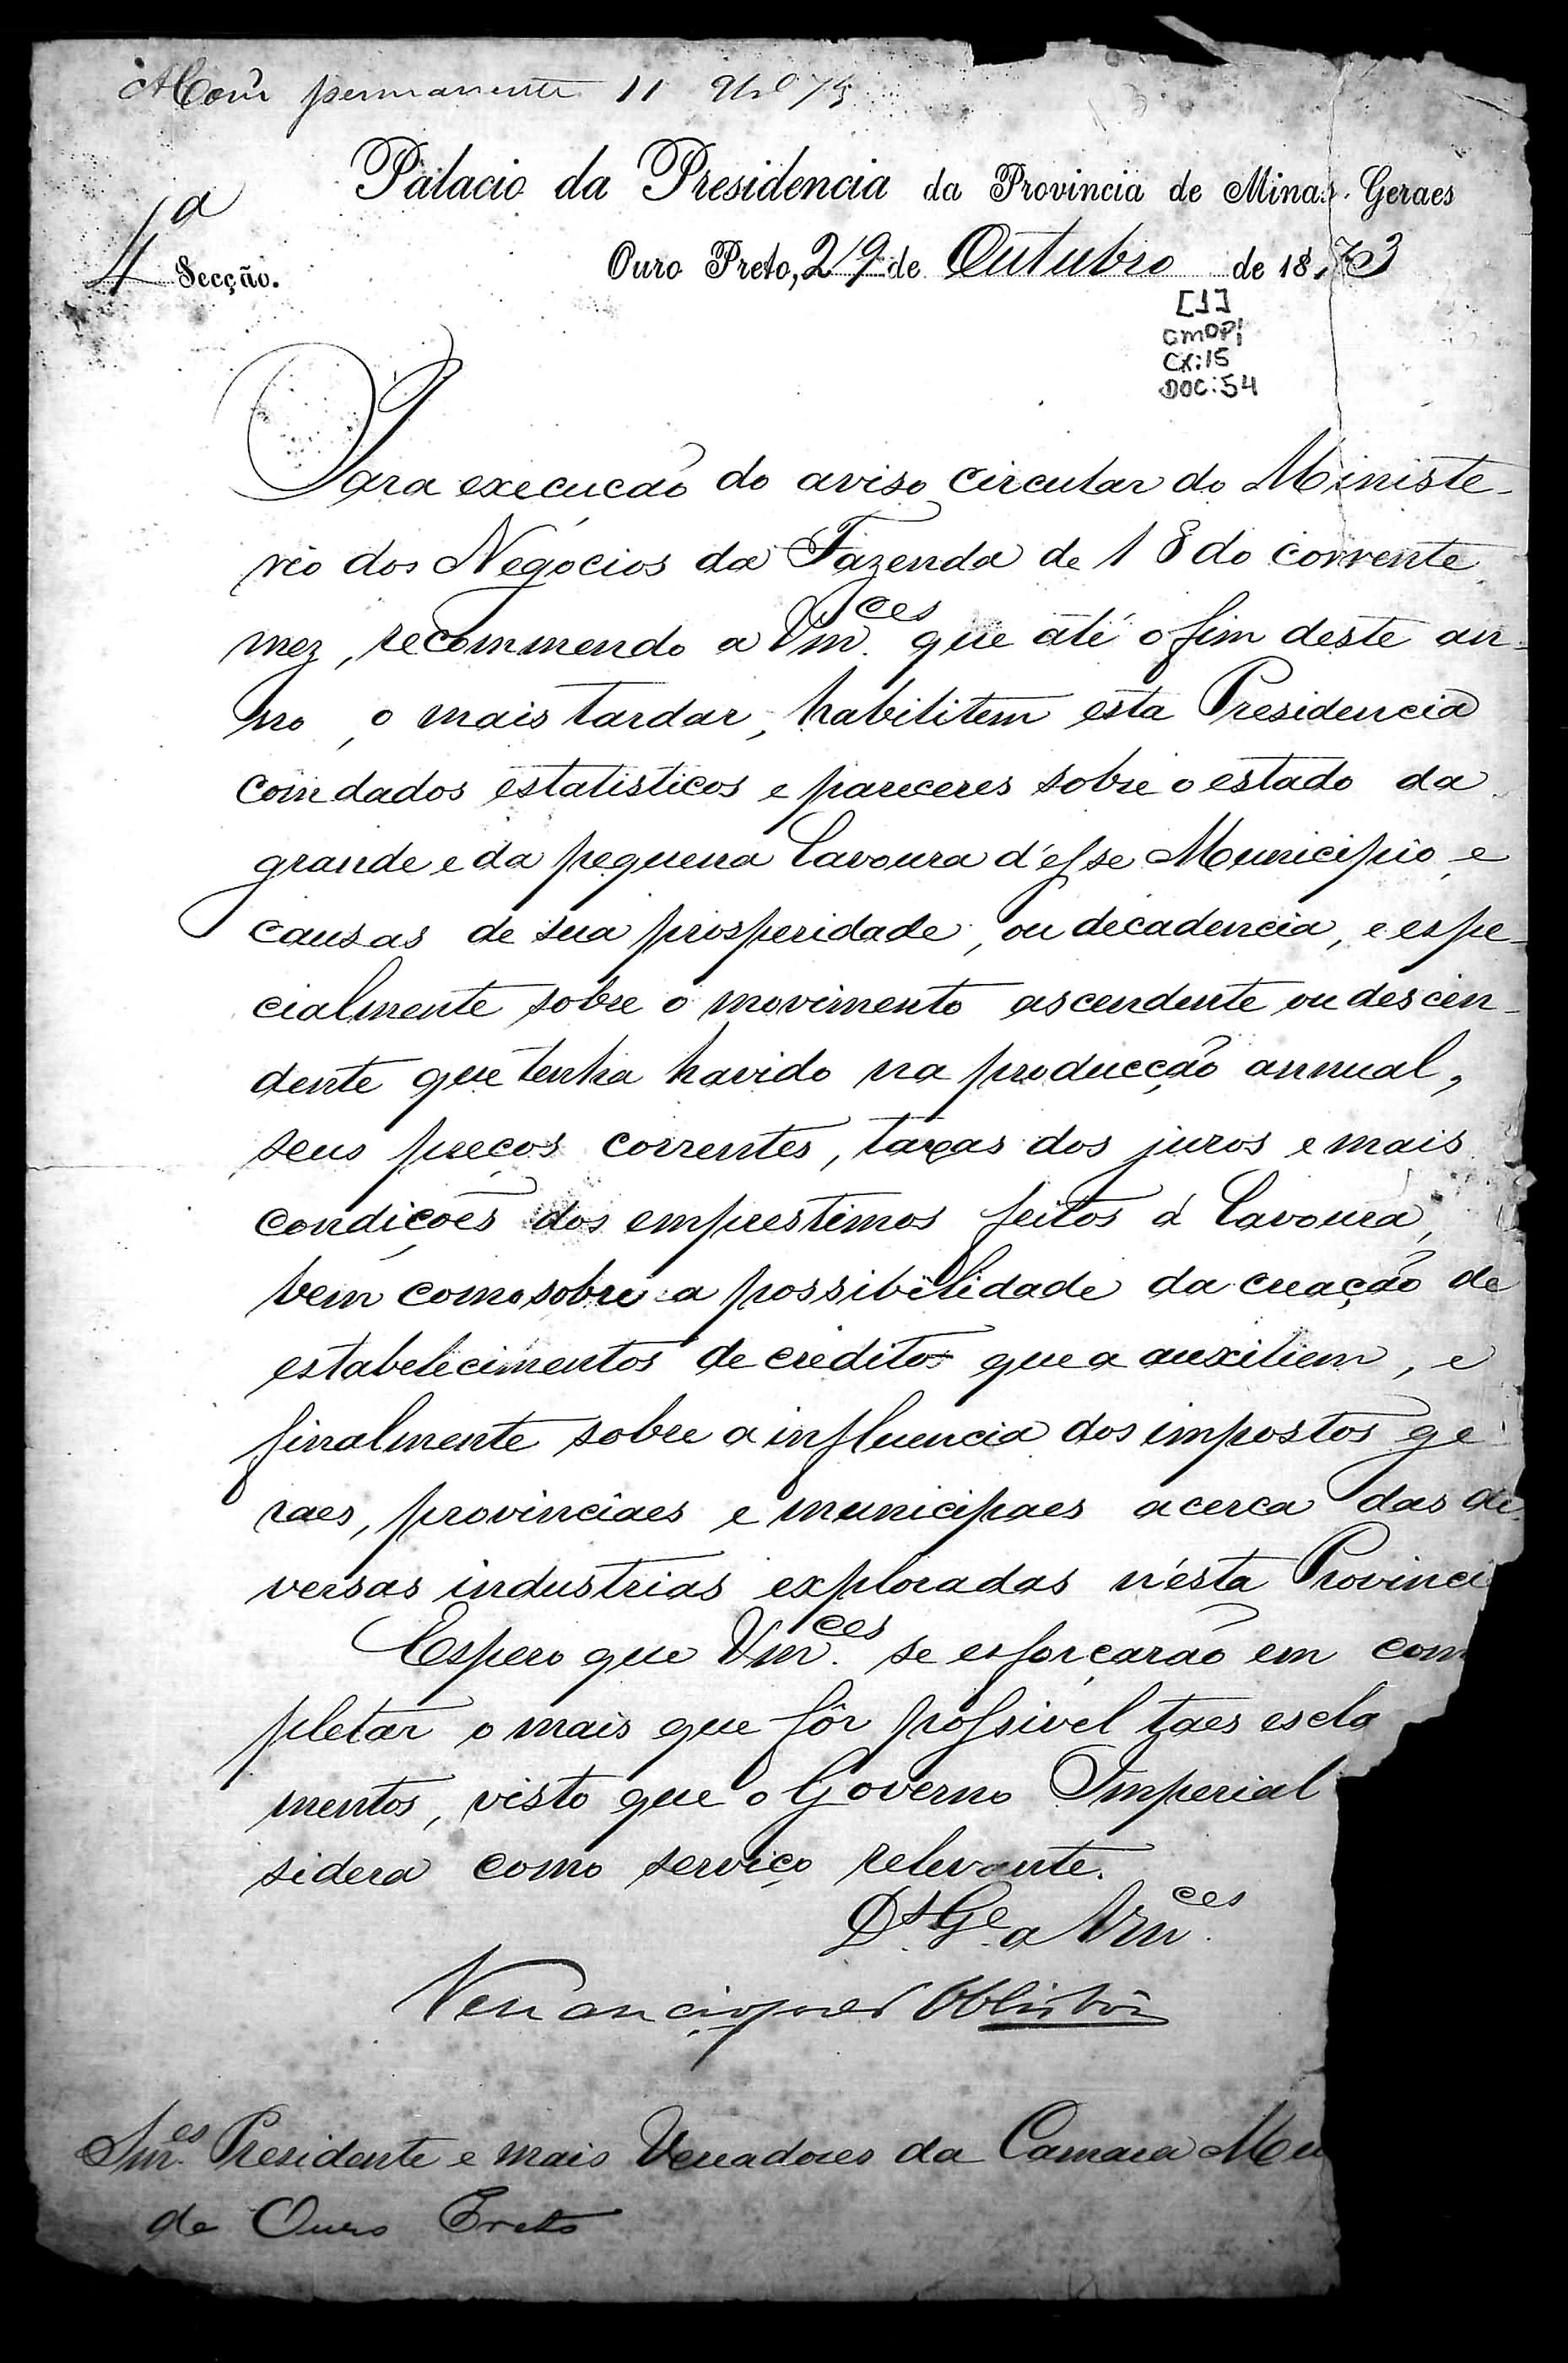 permanente 11
Palacio da Presidencia da Provincia de Minas Geraes
4ª Secção.
Ouro Preto, 29 de Outubro de 1873
[1]
CMOP
CX:15
DOC:54
Para execução do aviso circular do Ministe-
rio dos Negocios da Fazenda de 18 do corrente
mez, recommendo a Vm.ces que até o fim deste an-
no, o mais tardar, habilitem esta Presidencia
com dados estatisticos e pareceres sobre o estado da
grande e da pequena lavoura d'esse Municipio, e
causas de sua prosperidade, ou decadencia, e espe-
cialmente sobre o movimento ascendente ou descen-
dente que tenha havido na producção annual,
seus preços correntes, taxas dos juros e mais
condições dos emprestimos feitos á lavoura,
bem como sobre a possibilidade da creação de
estabelecimentos de credito que a auxiliem, e
finalmente sobre a influencia dos impostos ge-
raes, provinciaes e municipaes acerca das di-
versas industrias exploradas n'esta Provinci
Espero que Vm.ces se esforçarão em com
pletar o mais que fôr possivel taes escla
mentos, visto que o Governo Imperial
sidera como serviço relevante.
Ds. Ge. a Vm.ces
Snr.es Presidente e mais Vereadores da Camara Mu
de Ouro Preto